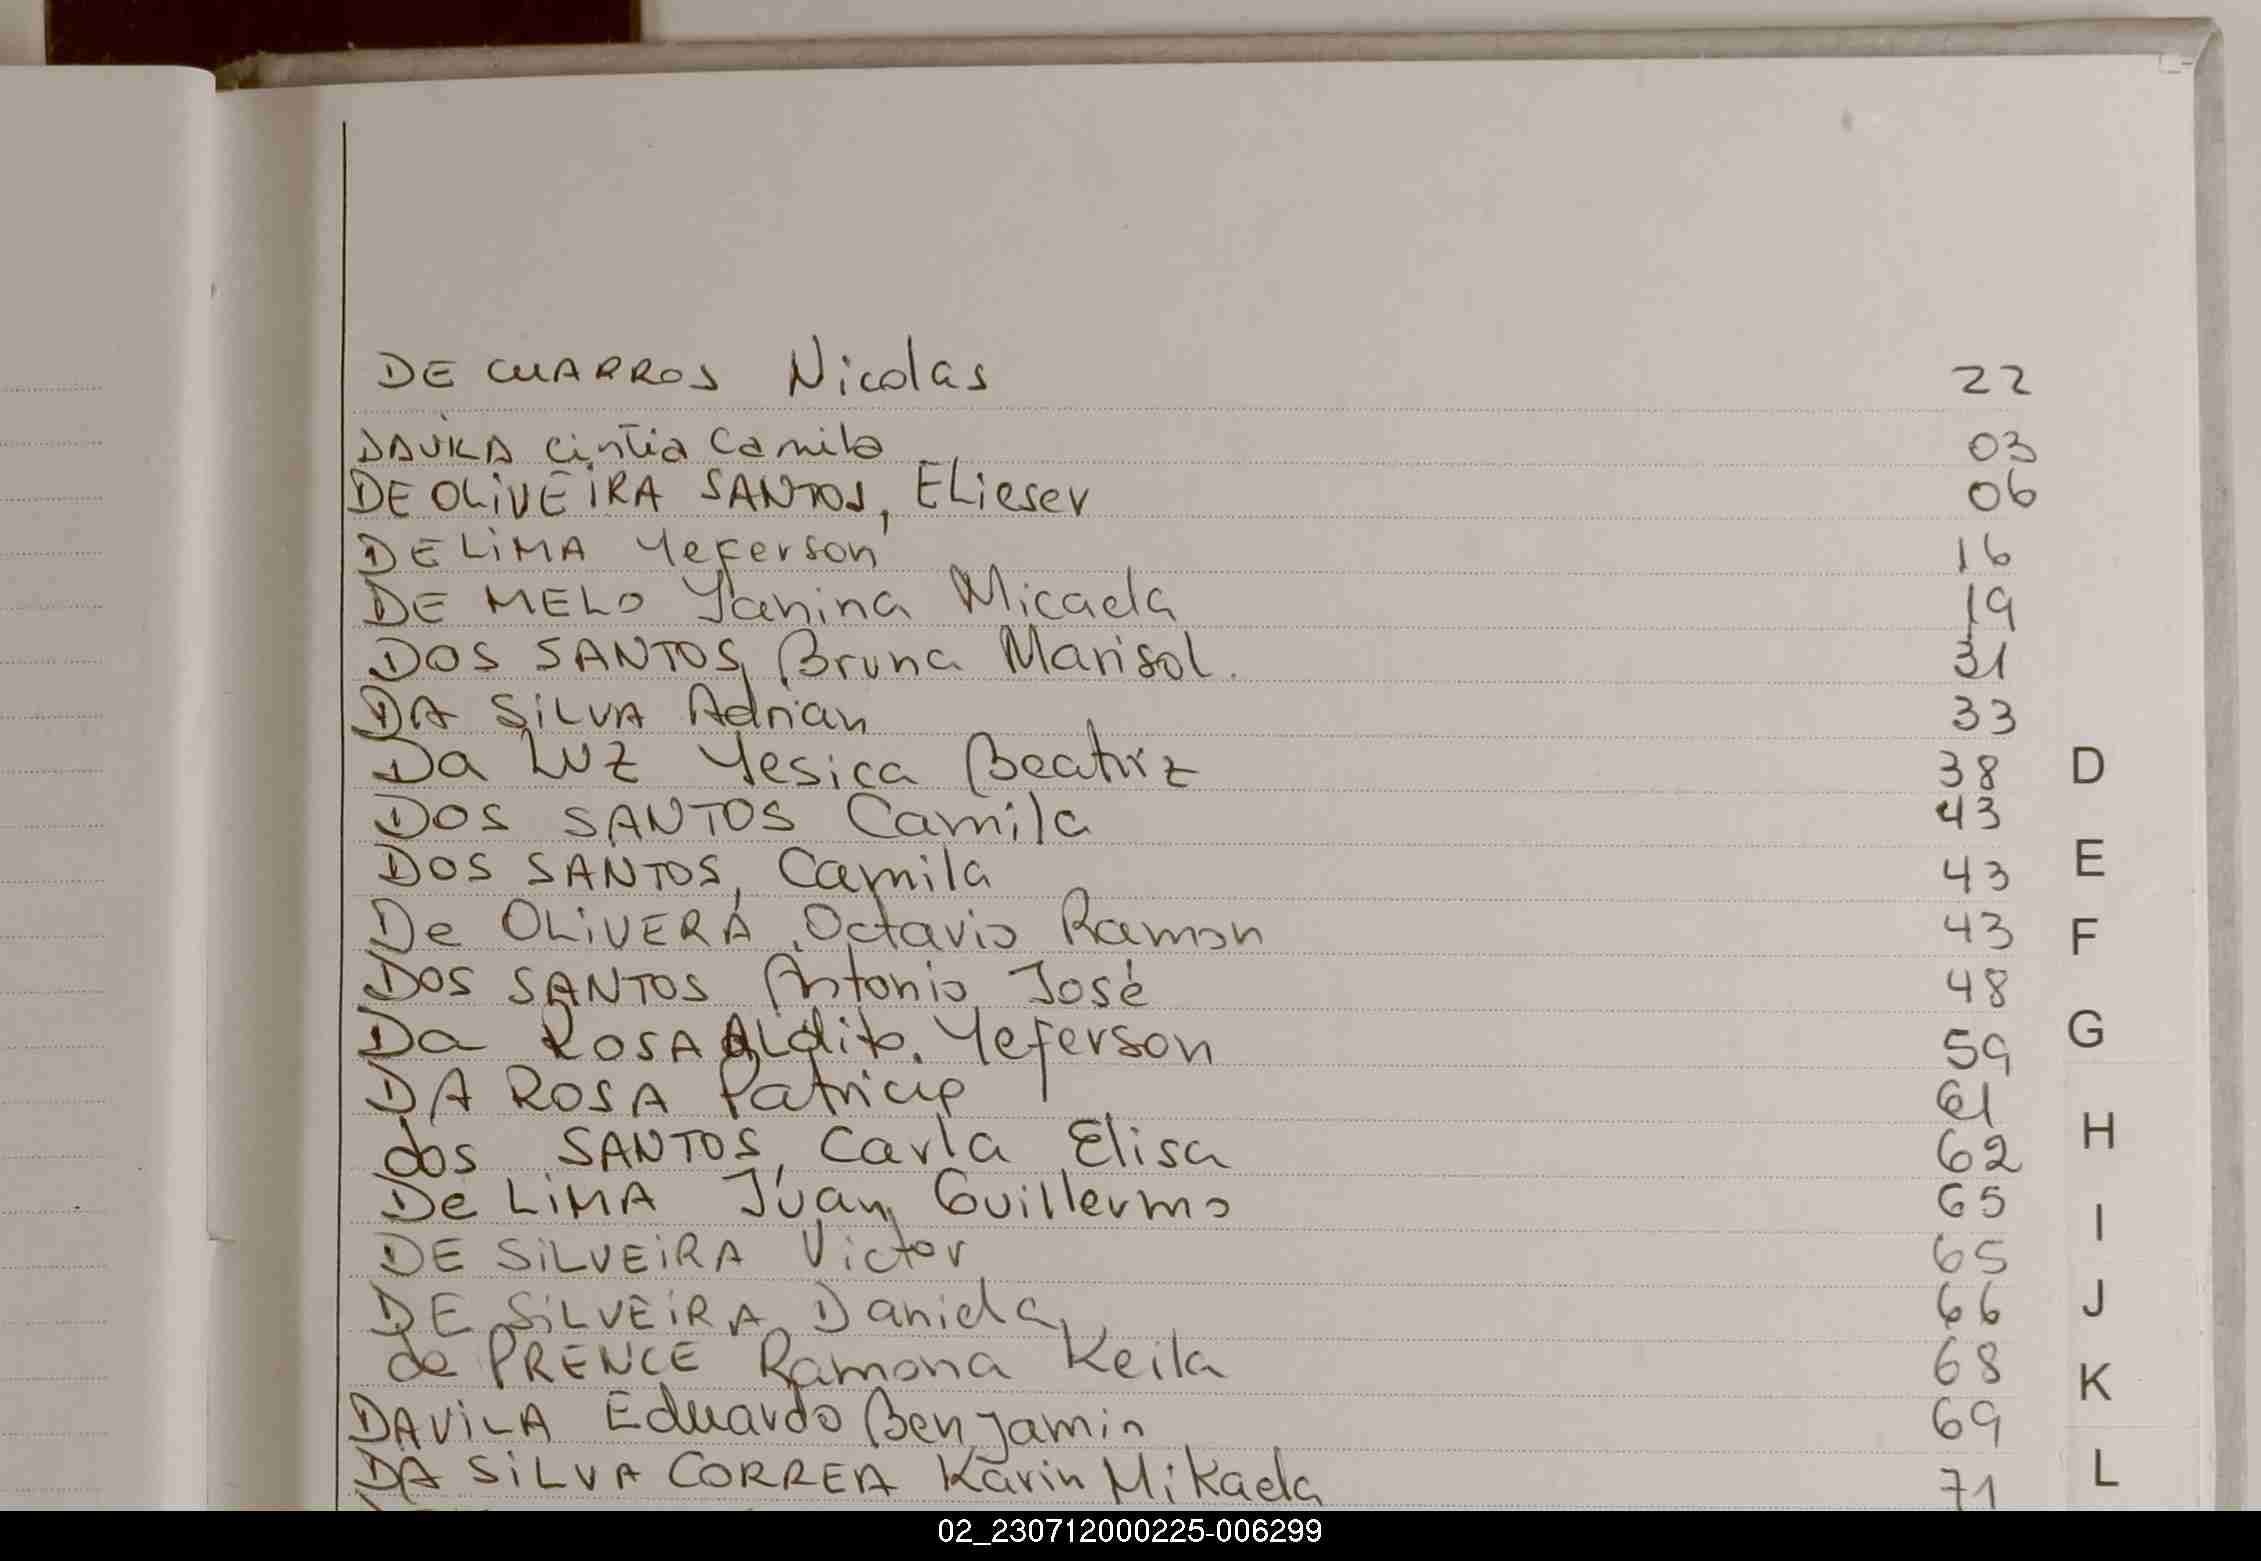 DE CUARROS Nicolas 22
DAVILA Cintia Camila 03
DE OLIVEIRA SANTOS, ELieser 06
DE LIMA Yeferson 16
DE MELO Yanina Micaela 19
DOS SANTOS, Bruna Marisol. 31
DA SILVA Adrian 33
Da LUZ Yesica Beatriz 38 D
DOS SANTOS Camila 43
DOS SANTOS, Camila 43 E
De OLIVERA, Octavio Ramon 43 F
DOS SANTOS Antonio José 48
Da ROSA ALdito. Yeferson 59 G
DA ROSA Patricia 61
dos SANTOS, Carla Elisa 62 H
De LIMA Juan Guillermo 65 I
DE SILVEIRA Victor 65
DE SILVEIRA Daniela 66 J
de PRENCE Ramona Keila 68 K
DAVILA Eduardo Benjamin 69
DA SILVA CORREA Karin Mikaela 71 L
02_230712000225-006299